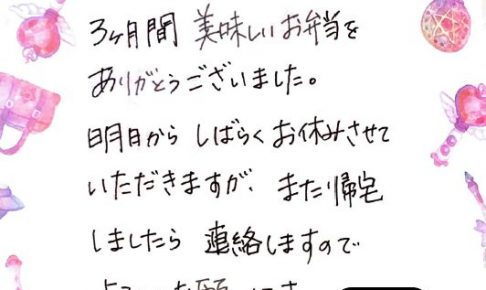 3ヶ月間 美味しいお弁当を
ありがとうございました。
明日から しばらくお休みさせて
いただきますが、また帰宅
しましたら 連絡しますので
お願